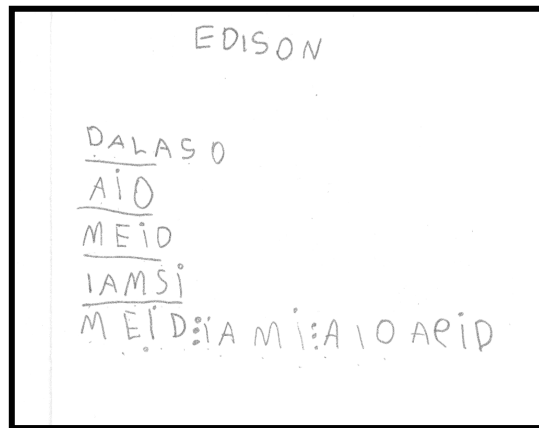 EDISON
DALASO
AiO
MEiD
IAMSi
MEID:iAMi:AIOAPiD